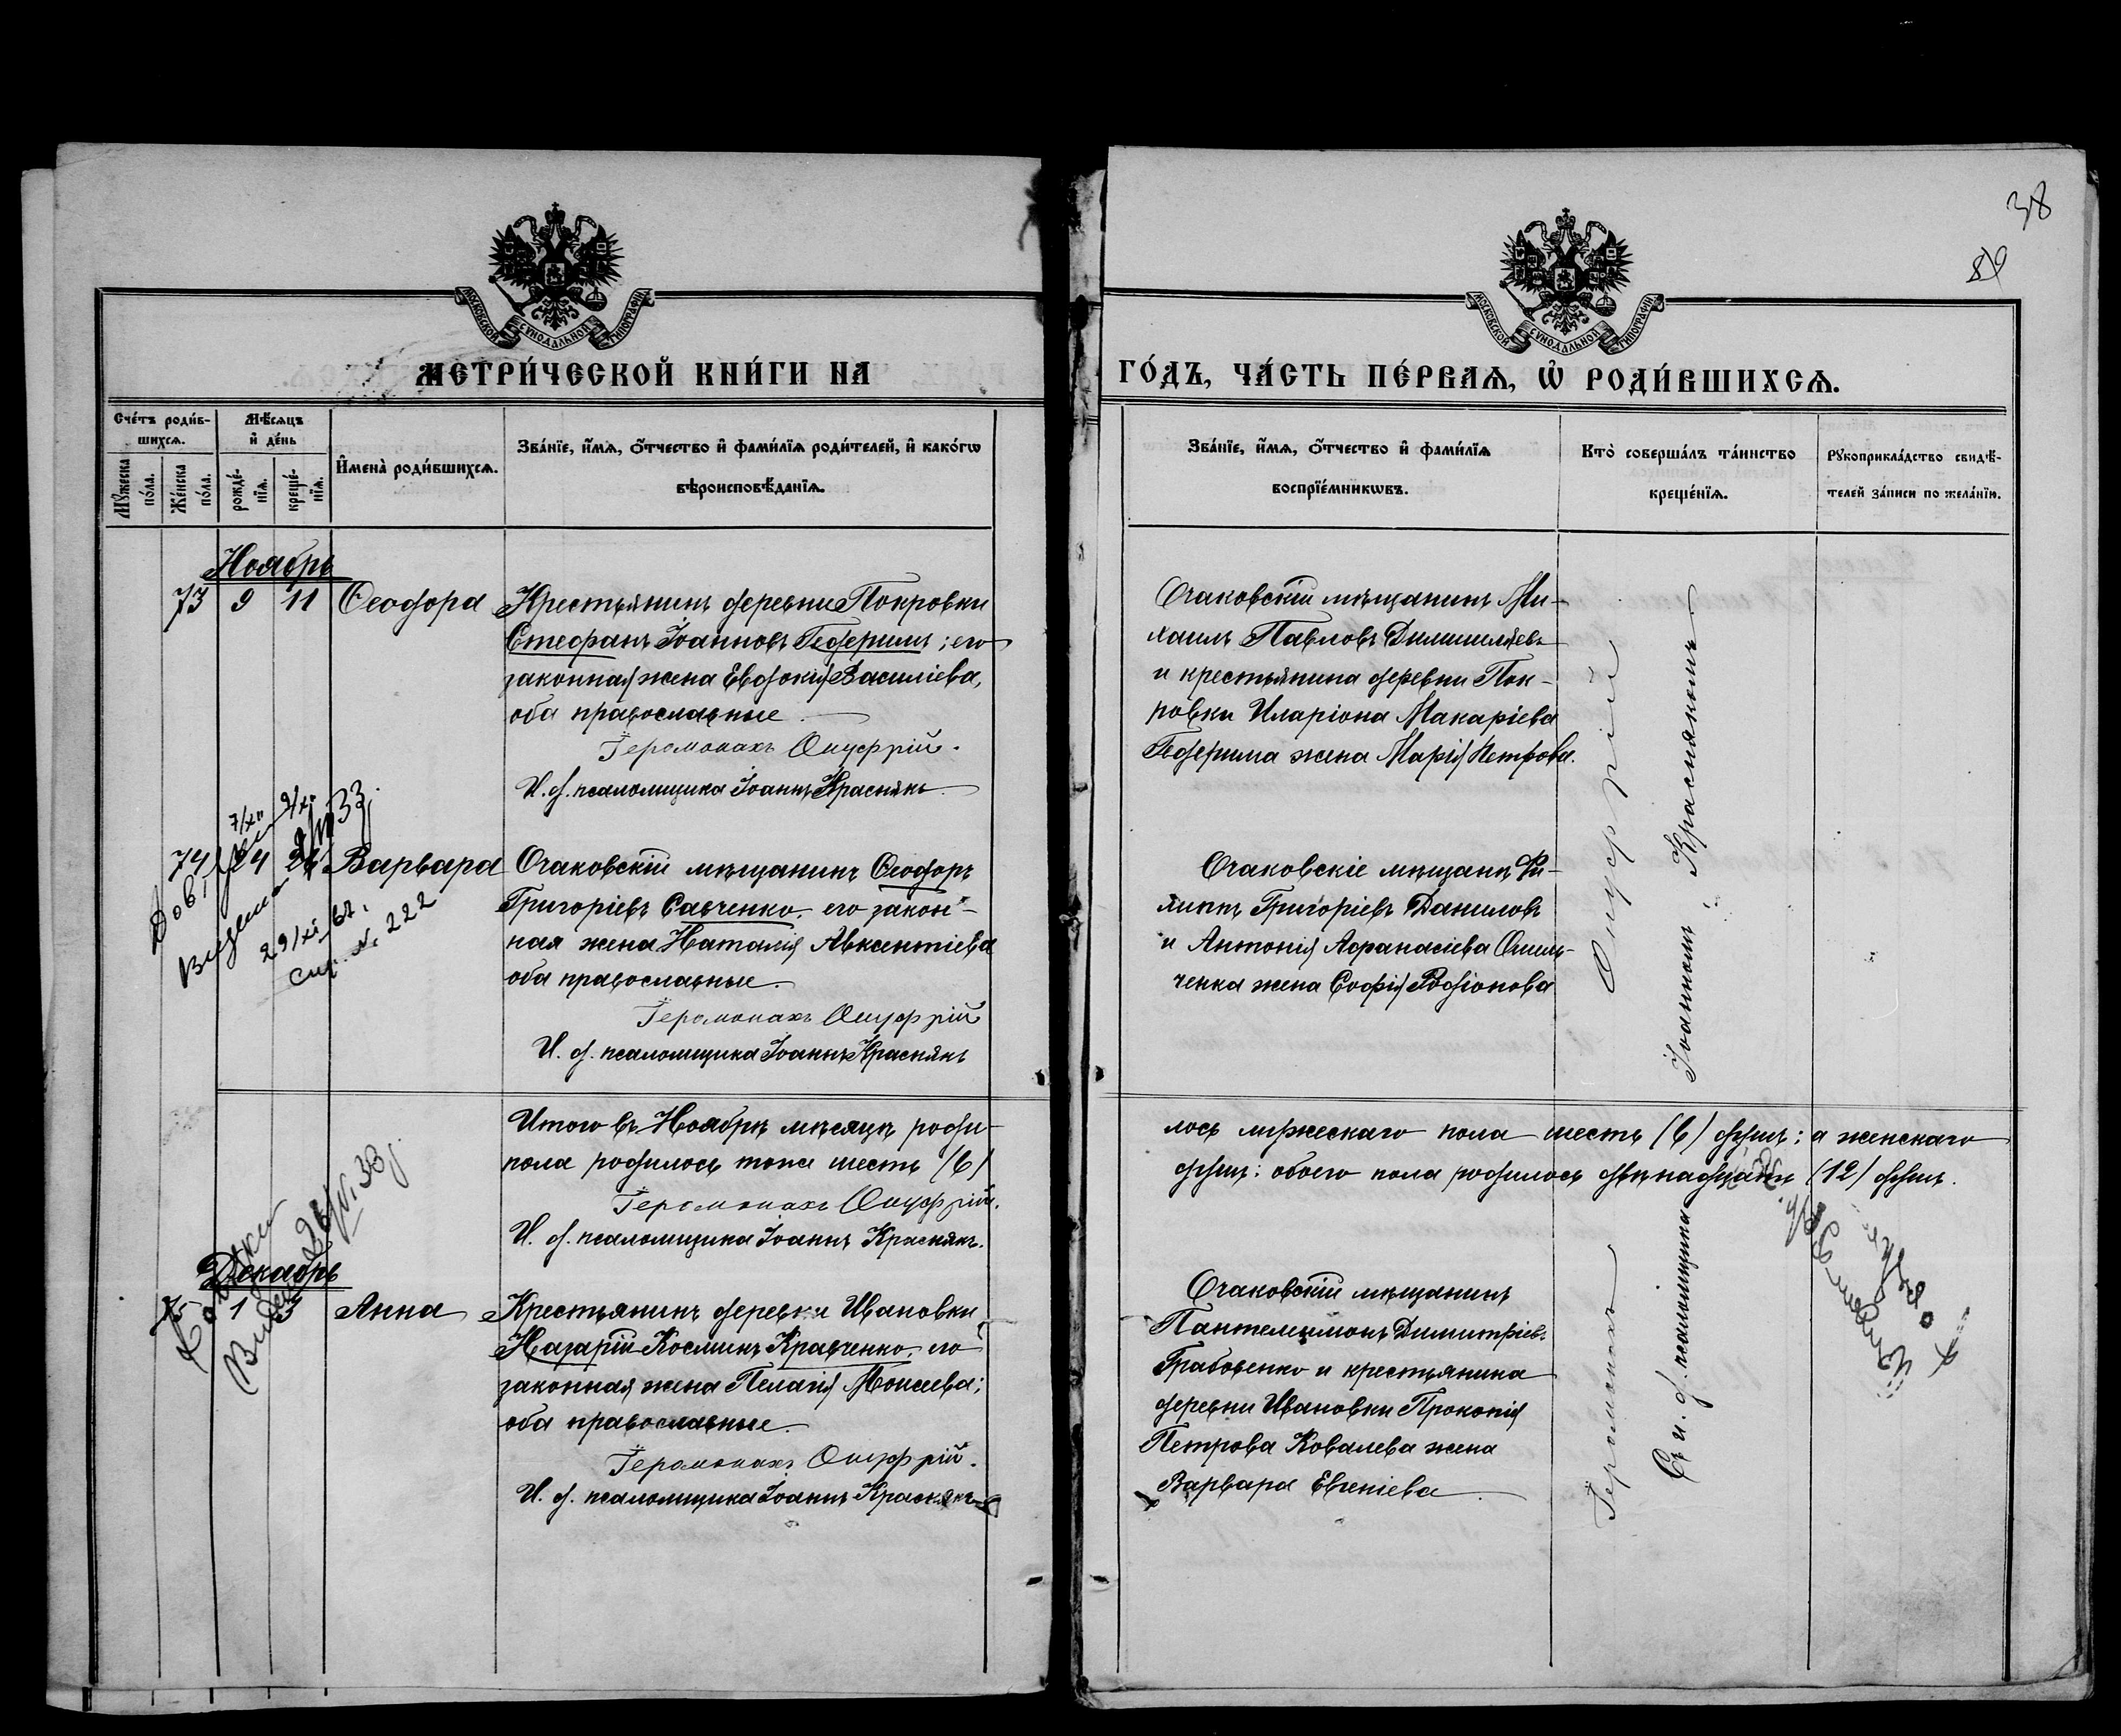 38
89
МОСКОВСКОЙ СѴНОДАЛЬНОЙ ТИПОГРАФІИ
МОСКОВСКОЙ СѴНОДАЛЬНОЙ ТИПОГРАФІИ
МЕТРИ́ЧЕСКОЙ КНИ́ГИ НА
ГО́ДЪ, ЧА́СТЬ ПЕ́РВАѦ, Ѡ҆ РОДИ́ВШИХСѦ.
Сче́тъ роди́в-
шихсѧ.
Мѣ́сѧцъ
и҆ де́нь
Мꙋ́жеска
по́ла.
Же́нска
по́ла.
рожде́-
нїѧ.
креще́-
нїѧ.
И҆мена̀ роди́вшихсѧ.
Зва́нїе, и҆́мѧ, ѻ҆́тчество и҆ фами́лїѧ роди́телей, и҆ како́гѡ
вѣроисповѣ́данїѧ.
Зва́нїе, и҆́мѧ, ѻ҆́тчество и҆ фами́лїѧ
воспрїе́мникѡвъ.
Кто̀ соверша́лъ та́инство
креще́нїѧ.
Рꙋкоприкла́дство свидѣ́-
телей за́писи по жела́нїю.
Ноябрь
73 9 11 Ѳеодора
Крестьянинъ деревни Покровки
Стефанъ Іоанновъ Гедеримъ; его
законная жена Евдокія Василіева,
оба православные.
Іеромонахъ Онуфрій.
И. д. псаломщика Іоаннъ Краснякъ
Очаковскій мѣщанинъ Ми-
хаилъ Павловъ
и крестьянина деревни Пок-
ровки Иларіона Макаріева
Гедерима жена Марія Петрова.
7/XII 9/XII
74 24 26 Варвара
Видана
29/XI 67.
N. 222
Очаковскій мѣщанинъ Ѳеодоръ
Григоріевъ Савченко, его закон-
ная жена Наталія Авксентіева
оба православные.
Іеромонахъ Онуфрій
И. д. псаломщика Іоаннъ Краснякъ
Очаковскіе мѣщане Фи-
липпъ Григоріевъ Даниловъ
и Антонія Афанасіева Омель-
ченка жена Софія Родіонова
Итого въ Ноябрѣ мѣсяцѣ роди-
лось мужескаго пола шесть (6) душъ; а женскаго
пола родилось тоже шесть (6)
душъ: обоего пола родилось двѣнадцать (12) душъ.
Іеромонахъ Онуфрій.
И. д. псаломщика Іоаннъ Краснякъ.
Декабрь
1 3 Анна
Крестьянинъ деревни Ивановки
Назарій Косминъ Кравченко, его
законная жена Пелагія Моисеева;
оба православные.
Іеромонахъ Онуфрій.
И. д. псаломщика Іоаннъ Краснякъ
Очаковскій мѣщанинъ
Пантелеимонъ Димитріевъ
Грабовенко и крестьянина
деревни Ивановки Прокопія
Петрова Ковалева жена
Варвара Евгеніева
Іеромонахъ Онуфрій
Съ и. д. псаломщика Іоанномъ Краснякомъ